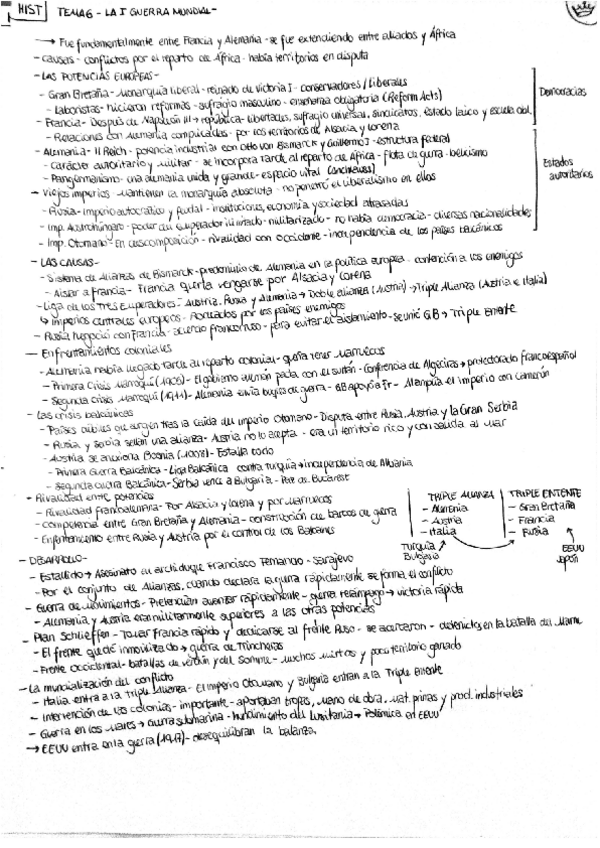 HIST
TEMA 6 - LA I GUERRA MUNDIAL -
→ Fue fundamentalmente entre Francia y Alemania - se fue extendiendo entre aliados y África
- causas - conflictos por el reparto de África - había territorios en disputa
- LAS POTENCIAS EUROPEAS -
- Gran Bretaña - Monarquía liberal - reinado de Victoria I - conservadores / liberales
- Laboristas - hicieron reformas - sufragio masculino - enseñanza obligatoria (Reform Acts)
- Francia - Después de Napoleón III → república - libertades, sufragio universal, sindicatos, estado laico y escuela obl.
- Relaciones con Alemania complicadas - por los territorios de Alsacia y Lorena
Democracias
- Alemania - II Reich - potencia industrial con Otto von Bismarck y Guillermo I - estructura federal
- Carácter autoritario y militar - se incorpora tarde al reparto de África - flota de guerra - belicismo
- Pangermanismo - una alemania unida y grande - espacio vital
- Viejos imperios - Mantienen la monarquía absoluta - no penetró el liberalismo en ellos
- Rusia - imperio autocrático y feudal - instituciones, economía y sociedad atrasadas
- Imp. Austrohúngaro - poder del emperador ilimitado - militarizado - no había democracia - diversas nacionalidades
- Imp. Otomano - En descomposición - rivalidad con occidente - independencia de los países balcánicos
Estados autoritarios
- LAS CAUSAS -
- Sistema de Alianzas de Bismarck - predominio de Alemania en la política europea - contención a los enemigos
- Aislar a Francia - Francia quería vengarse por Alsacia y Lorena
- Liga de los Tres Emperadores - Austria, Rusia y Alemania → Doble alianza (Austria) → Triple Alianza (Austria e Italia)
↳ Imperios centrales europeos - Rodeados por los países enemigos
- Rusia negoció con Francia - acuerdo francorruso - para evitar el aislamiento - se unió G.B → Triple Entente
- Enfrentamientos coloniales
- Alemania había llegado tarde al reparto colonial - quería tener Marruecos
- Primera Crisis Marroquí (1905) - El gobierno alemán pacta con el sultán - Conferencia de Algeciras → protectorado francoespañol
- Segunda Crisis Marroquí (1911) - Alemania envía buques de guerra - GB apoya a Fr - Al amplía el imperio con Camerún
- Las crisis balcánicas
- Países débiles que surgen tras la caída del imperio Otomano - Disputa entre Rusia, Austria y la Gran Serbia
- Rusia y Serbia sellan una alianza - Austria no lo acepta - era un territorio rico y con salida al mar
- Austria se anexiona Bosnia (1908) - Estalla todo
- Primera Guerra Balcánica - Liga Balcánica contra Turquía → independencia de Albania
- Segunda Guerra Balcánica - Serbia vence a Bulgaria - Paz de Bucarest
- Rivalidad entre potencias
- Rivalidad francoalemana - Por Alsacia y Lorena y por Marruecos
- Competencia entre Gran Bretaña y Alemania - construcción de barcos de guerra
- Enfrentamiento entre Rusia y Austria por el control de los Balcanes
TRIPLE ALIANZA
- Alemania
- Austria
- Italia
Turquía
Bulgaria
TRIPLE ENTENTE
- Gran Bretaña
- Francia
- Rusia
EEUU
Japón
- DESARROLLO -
- Estallido → Asesinato del archiduque Francisco Fernando - Sarajevo
- Por el conjunto de Alianzas, cuando declara la guerra rápidamente se forma el conflicto
- Guerra de Movimientos - Pretendían avanzar rápidamente - guerra relámpago → victoria rápida
- Alemania y Austria eran militarmente superiores a las otras potencias
- Plan Schlieffen - Tomar Francia rápido y dedicarse al frente Ruso - se acercaron - detenidos en la batalla del Marne
- El frente quedó inmovilizado → guerra de Trincheras
- Frente Occidental - batallas de Verdún y del Somme - muchos muertos y poco territorio ganado
- La mundialización del conflicto
- Italia entra a la Triple Alianza - El Imperio Otomano y Bulgaria entran a la Triple Entente
- Intervención de las colonias - importante - aportaban tropas, mano de obra, mat. primas y prod. industriales
- Guerra en los mares → Guerra submarina - hundimiento del Lusitania → Polémica en EEUU
→ EEUU entra en la guerra (1917) - desequilibran la balanza.